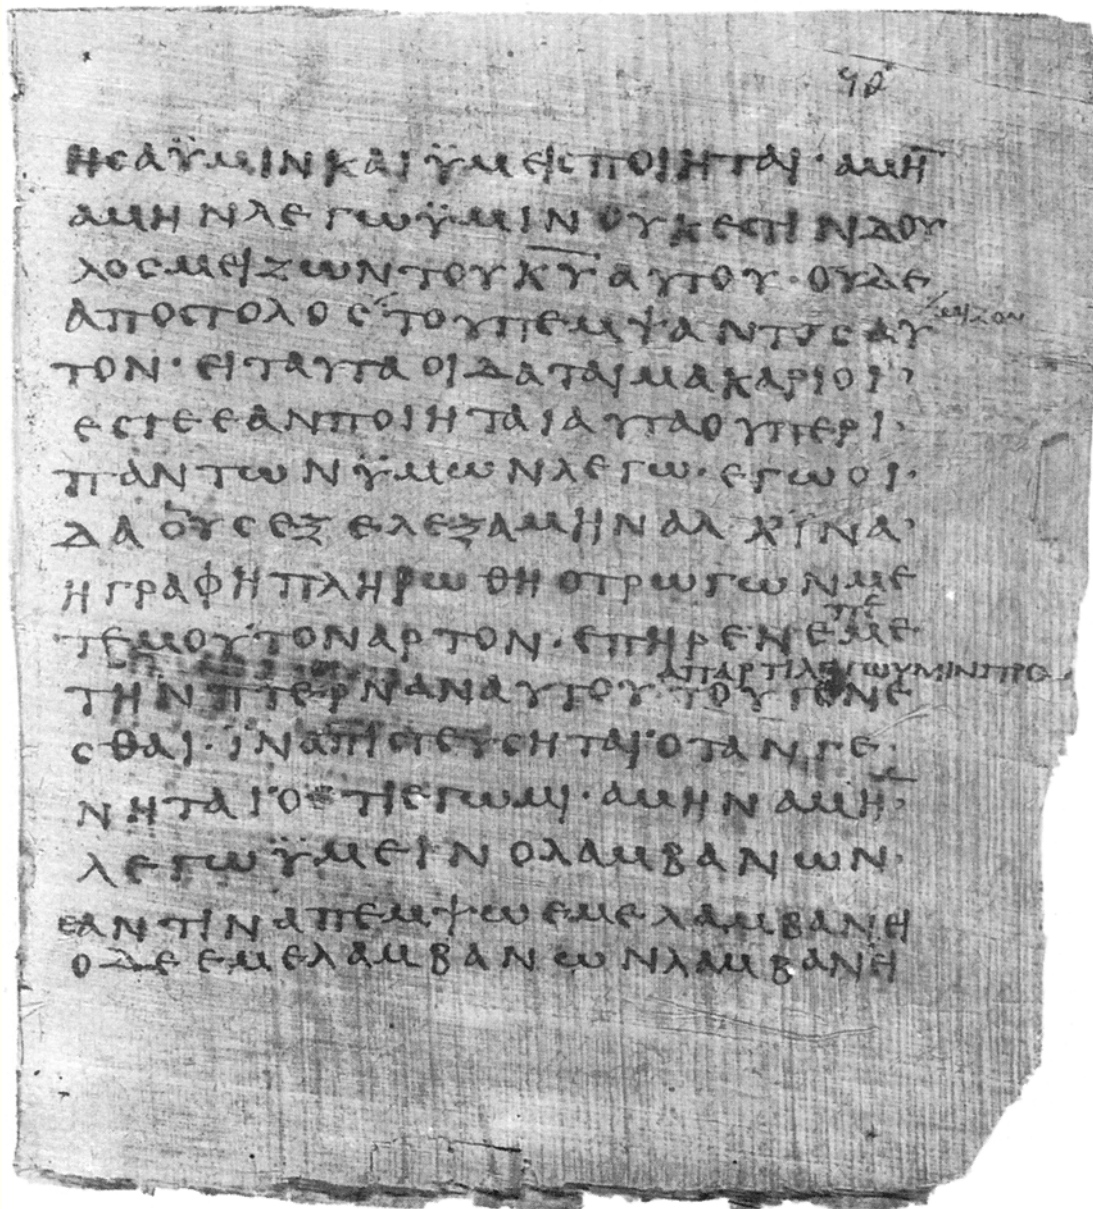 ϥβ
ησα ϋμιν και ϋμεις ποιηται· αμη̅
αμην λεγω ϋμιν ουκ εστιν δου
λος μειζων του κ̅υ̅ αυτου· ουδε
αποστολος του πεμψαντος αυ μειζον
τον· ει ταυτα οιδαται μακαριοι·
εστε εαν ποιηται αυτα ου περι·
παντων ϋμων λεγω· εγω οι·
δα ους εξελεξαμην αλλ ϊνα·
η γραφη πληρωθη ο τρωγων με
πε
τε μου τον αρτον· επηρεν εμε
απαρτι λεγω υμιν προ
την πτερναν αυτου· του γενε
σθαι· ϊνα πιστευσηται οταν γε·
νηται οτι εγω μι· αμην αμη̅·
λεγω ϋμειν ο λαμβανων·
εαν τινα πεμψω εμε λαμβανει
ο δε εμε λαμβανων λαμβανει